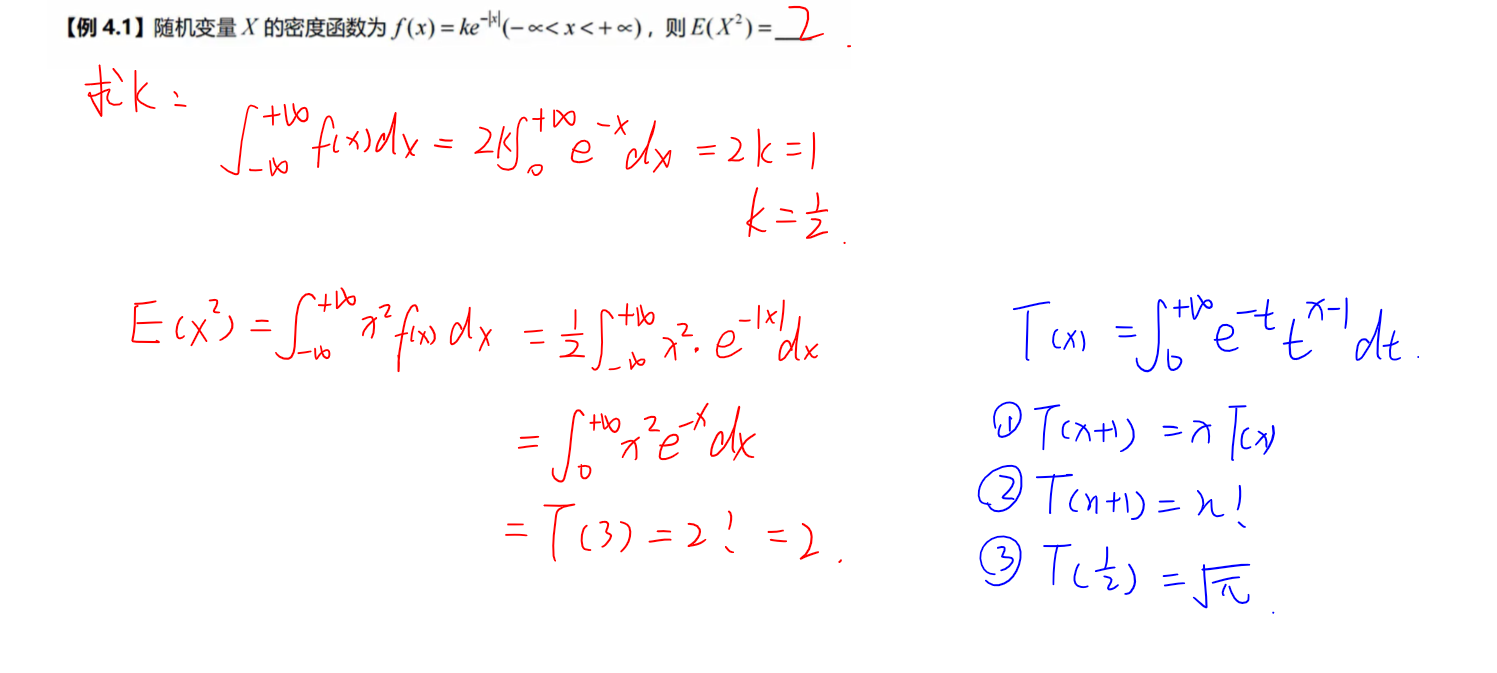 【例 4.1】随机变量 X 的密度函数为 f(x)=ke^{-|x|}(-∞<x<+∞)，则 E(X²)=__2.
求k：
∫_{-∞}^{+∞} f(x)dx = 2k∫_0^{+∞} e^{-x}dx = 2k=1
k=1/2.
E(x²) = ∫_{-∞}^{+∞} x² f(x) dx = 1/2 ∫_{-∞}^{+∞} x²·e^{-|x|}dx
= ∫_0^{+∞} x²e^{-x}dx
= Γ(3) = 2! = 2.
Γ(x) = ∫_0^{+∞} e^{-t} t^{x-1} dt.
① Γ(x+1) = xΓ(x)
② Γ(n+1) = n!
③ Γ(1/2) = √π.